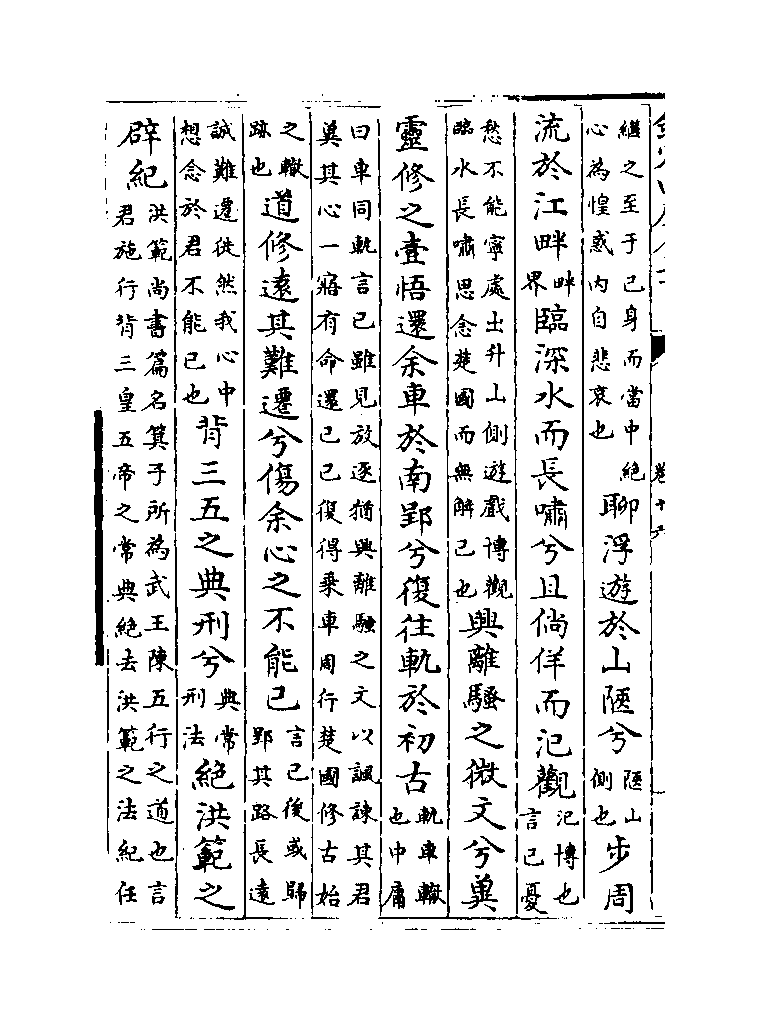 繼之至于已身而當中絶
心為惶惑内自悲哀也
聊浮遊於山陿兮
陿山
側也
步周
流於江畔
畔
界
臨深水而長嘯兮且倘佯而氾觀
氾博也
言已憂
愁不能寧處出升山側遊戲博觀
臨水長嘯思念楚國而無解已也
興離騷之微文兮冀
靈修之壹悟還余車於南郢兮復往軌於初古
軌車轍
也中庸
曰車同軌言已雖見放逐猶興離騷之文以諷諫其君
冀其心一寤有命還已已復得乘車周行楚國修古始
之轍
跡也
道修遠其難遷兮傷余心之不能已
言已後或歸
郢其路長遠
誠難遷徙然我心中
想念於君不能已也
背三五之典刑兮
典常
刑法
絶洪範之
辟紀
洪範尚書篇名箕子所為武王陳五行之道也言
君施行背三皇五帝之常典絶去洪範之法紀任